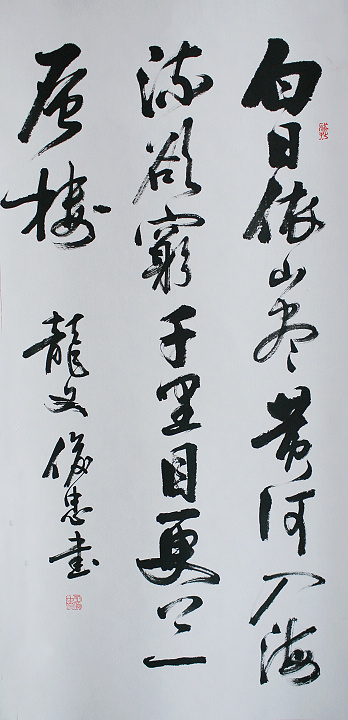 白日依山盡黄河入海
流欲窮千里目更上一
層樓
龍文俊忠書